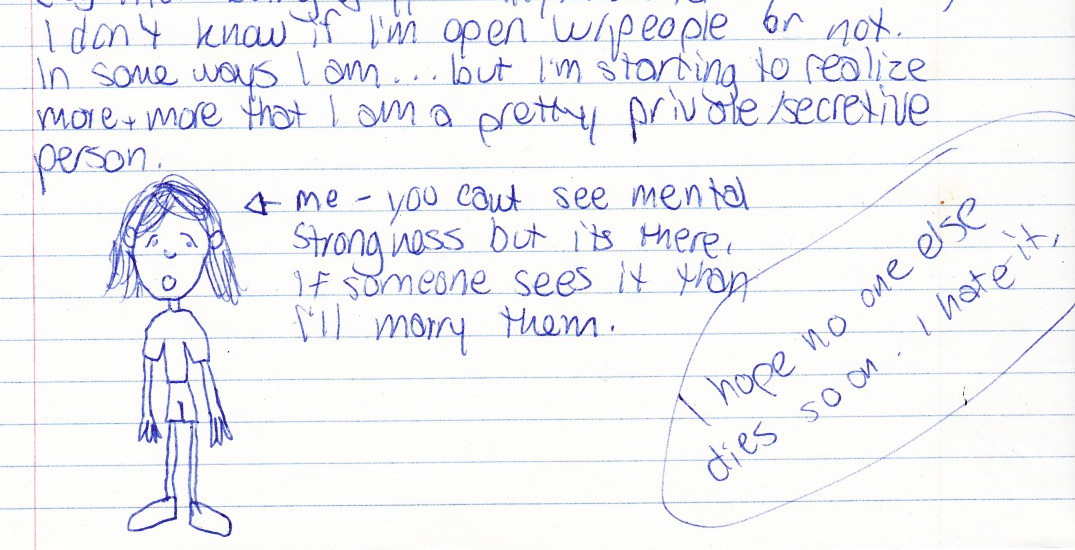 I don't know if I'm open w/people or not.
In some ways I am... but I'm starting to realize
more + more that I am a pretty private/secretive
person.
me - you cant see mental
strongness but its there.
if someone sees it than
I'll marry them.
I hope no one else
dies soon. I hate it.